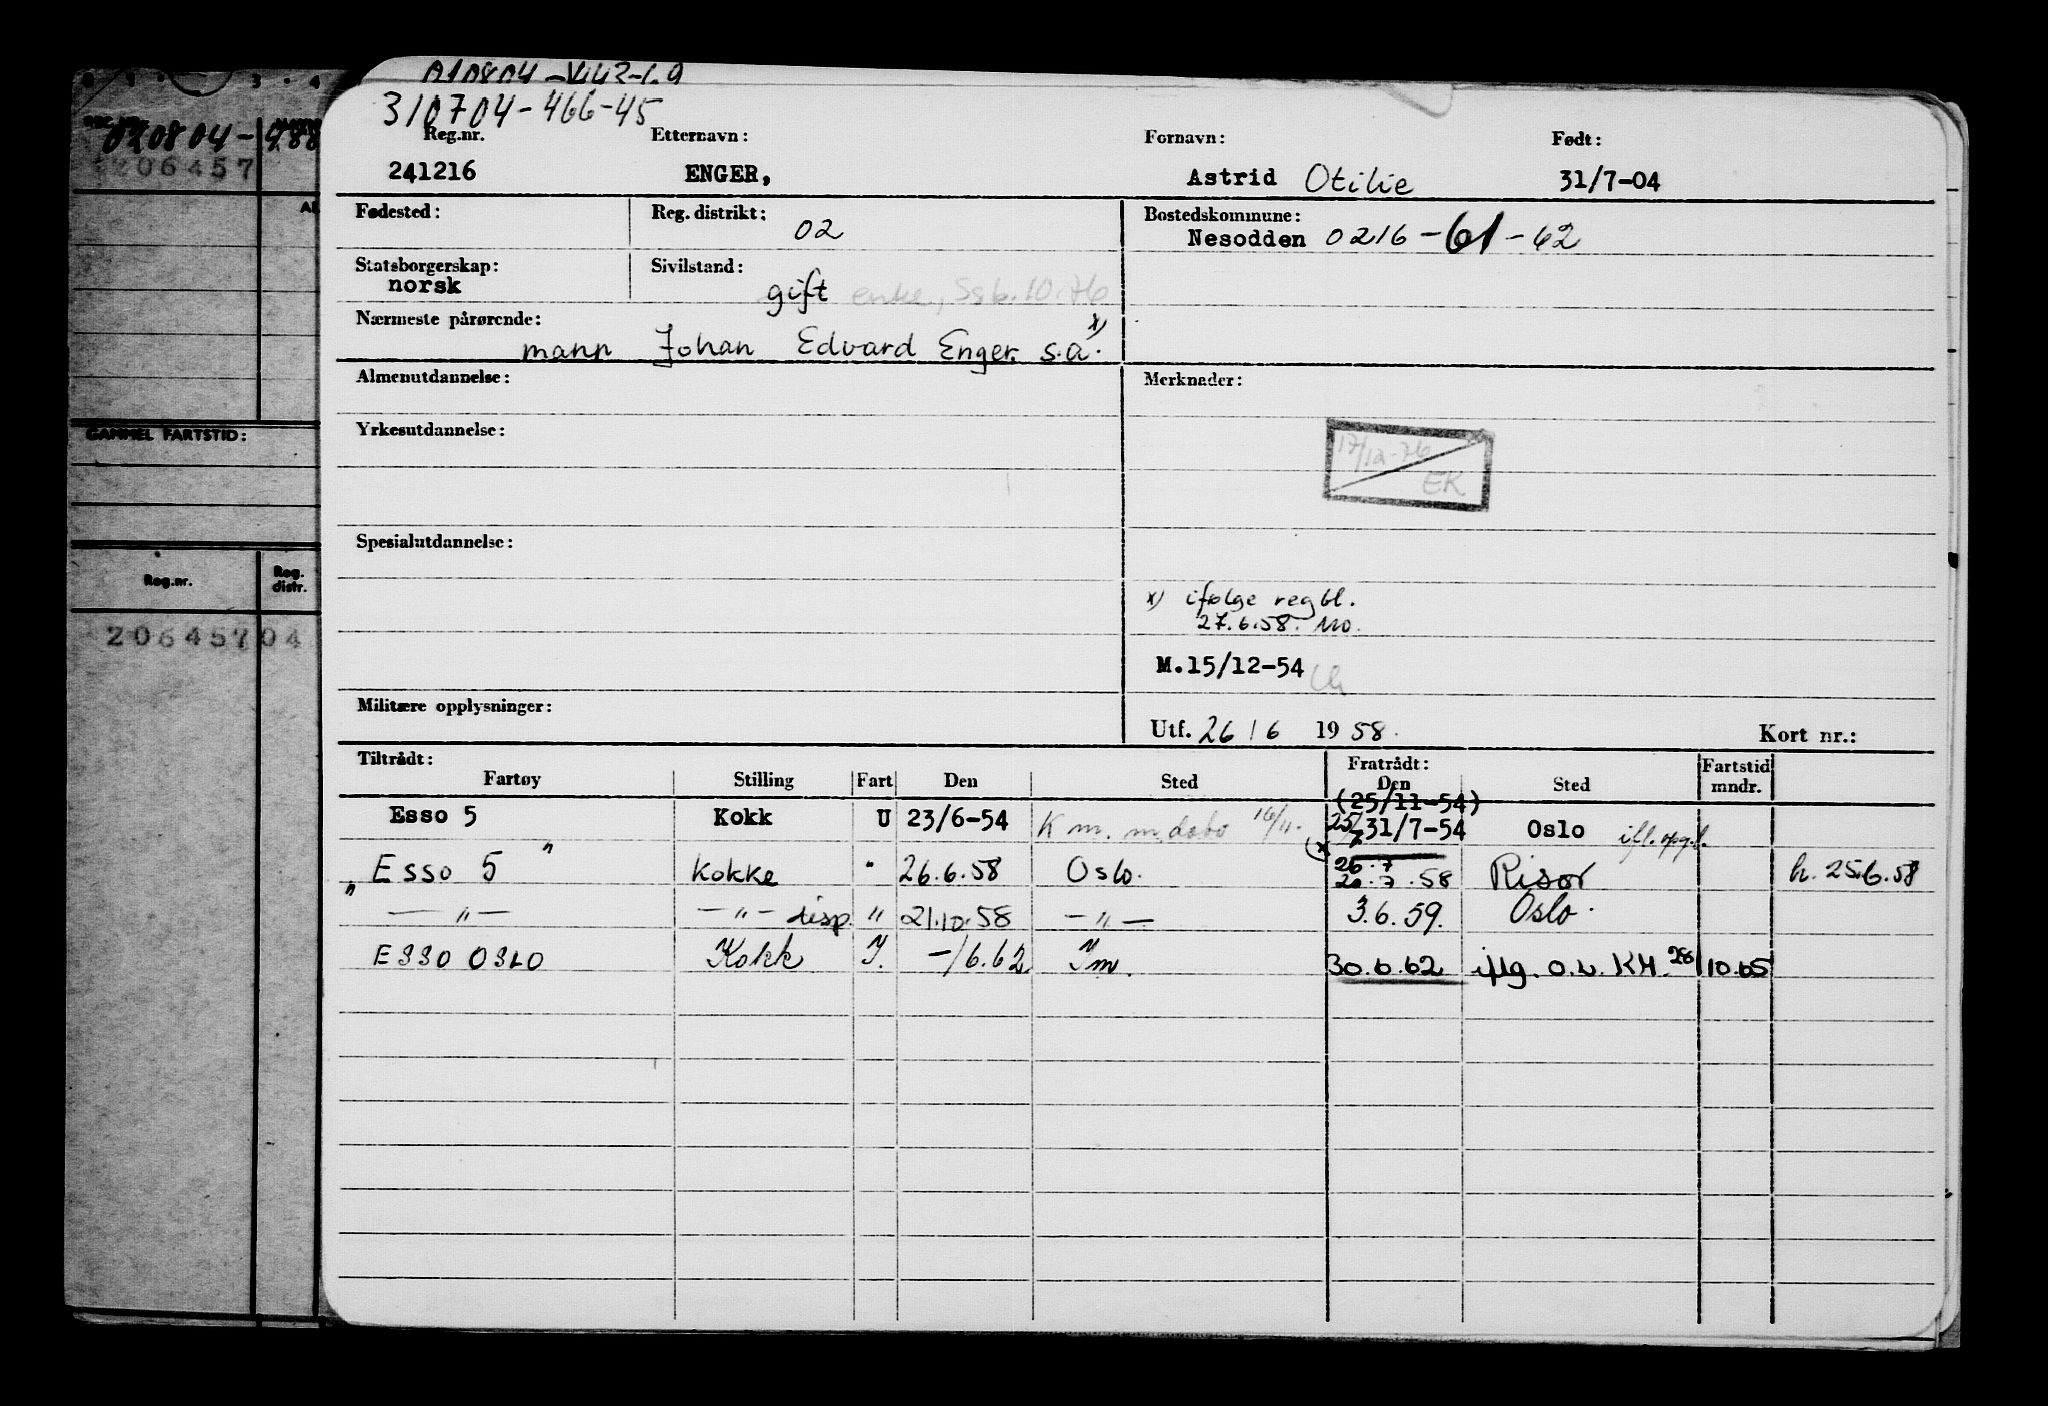 310704-466-45
Reg.nr. Etternavn: Fornavn: Født:
241216 ENGER, Astrid Otilie 31/7-04
Fødested: Reg. distrikt: 02 Bostedskommune:
Nesodden 0216-61-62
Statsborgerskap: Sivilstand:
norsk gift enke, S 96.10.76
Nærmeste pårørende:
mann Johan Edvard Enger s.a. x)
Almenutdannelse: Merknader:
Yrkesutdannelse:
17/12-76
EK
Spesialutdannelse:
x) ifølge regbl.
27.6.58. Mo.
M.15/12-54
Militære opplysninger:
Utf. 26/6 1958. Kort nr.:
Tiltrådt: Fratrådt: Fartstid
Fartøy Stilling Fart Den Sted Den Sted mndr.
(25/11-54)
Esso 5 Kokk U 23/6-54 K m. 16/11. 25/7 31/7-54 Oslo
" Esso 5 " Kokke " 26.6.58 Oslo. 26.7 .58 Risør h. 25.6.58
— " — — " — disp. " 21.10.58 — " — 3.6.59. Oslo.
ESSO OSLO Kokk I. -/6.62 Im. 30.6.62 iflg. o.v. KH. 28/10.65
020804-988
206457
GAMMEL FARTSTID:
Reg.nr. Reg. distr.
206457 04